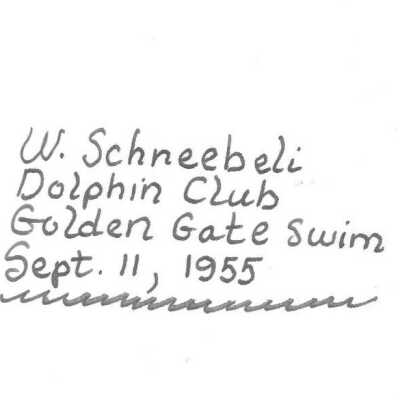 W. Schneebeli
Dolphin Club
Golden Gate Swim
Sept. 11, 1955